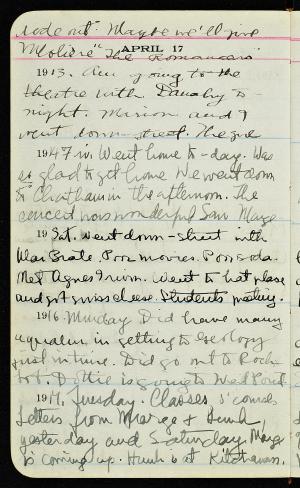 rode out" Maybe we'll give
Moliere" "The Romancers"
APRIL 17
1913. Am going to the
theatre with Danaby to-
night. Marion and I
went down street. The gue
1914 Fri. Went home to-day. Was
so glad to get home We went down
to Chatham in the afternoon. The
concert was wonderful Saw Marge
19 Sat. Went down-street with
Poor movies. Poor soda.
Met Agnes Went to hat place
and got swiss cheese. Students' meeting.
1916. Monday Did have many
in getting to Geology
just in time. Did go out to Rock
Dottie is going to West Point
191 Tuesday. Classes of course
Letters from Marge & Hunk
yesterday and Saturday. Marge
is coming up. Hunk is at